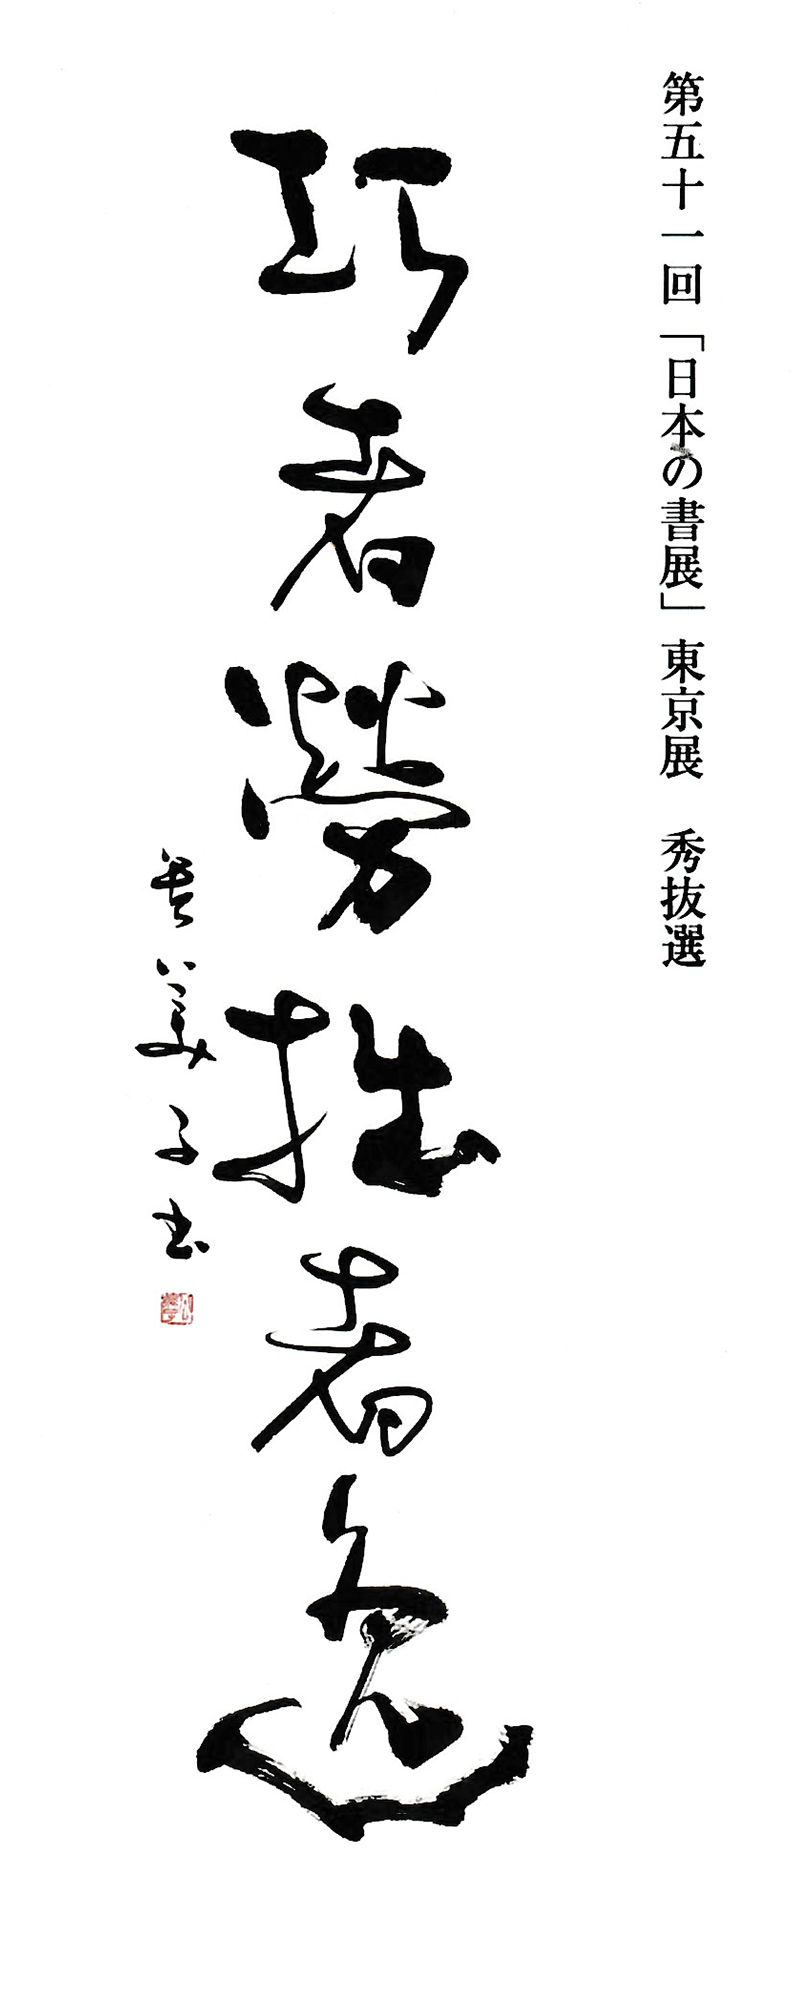 第五十一回「日本の書展」東京展　秀抜選
巧者勞拙者逸
美子書